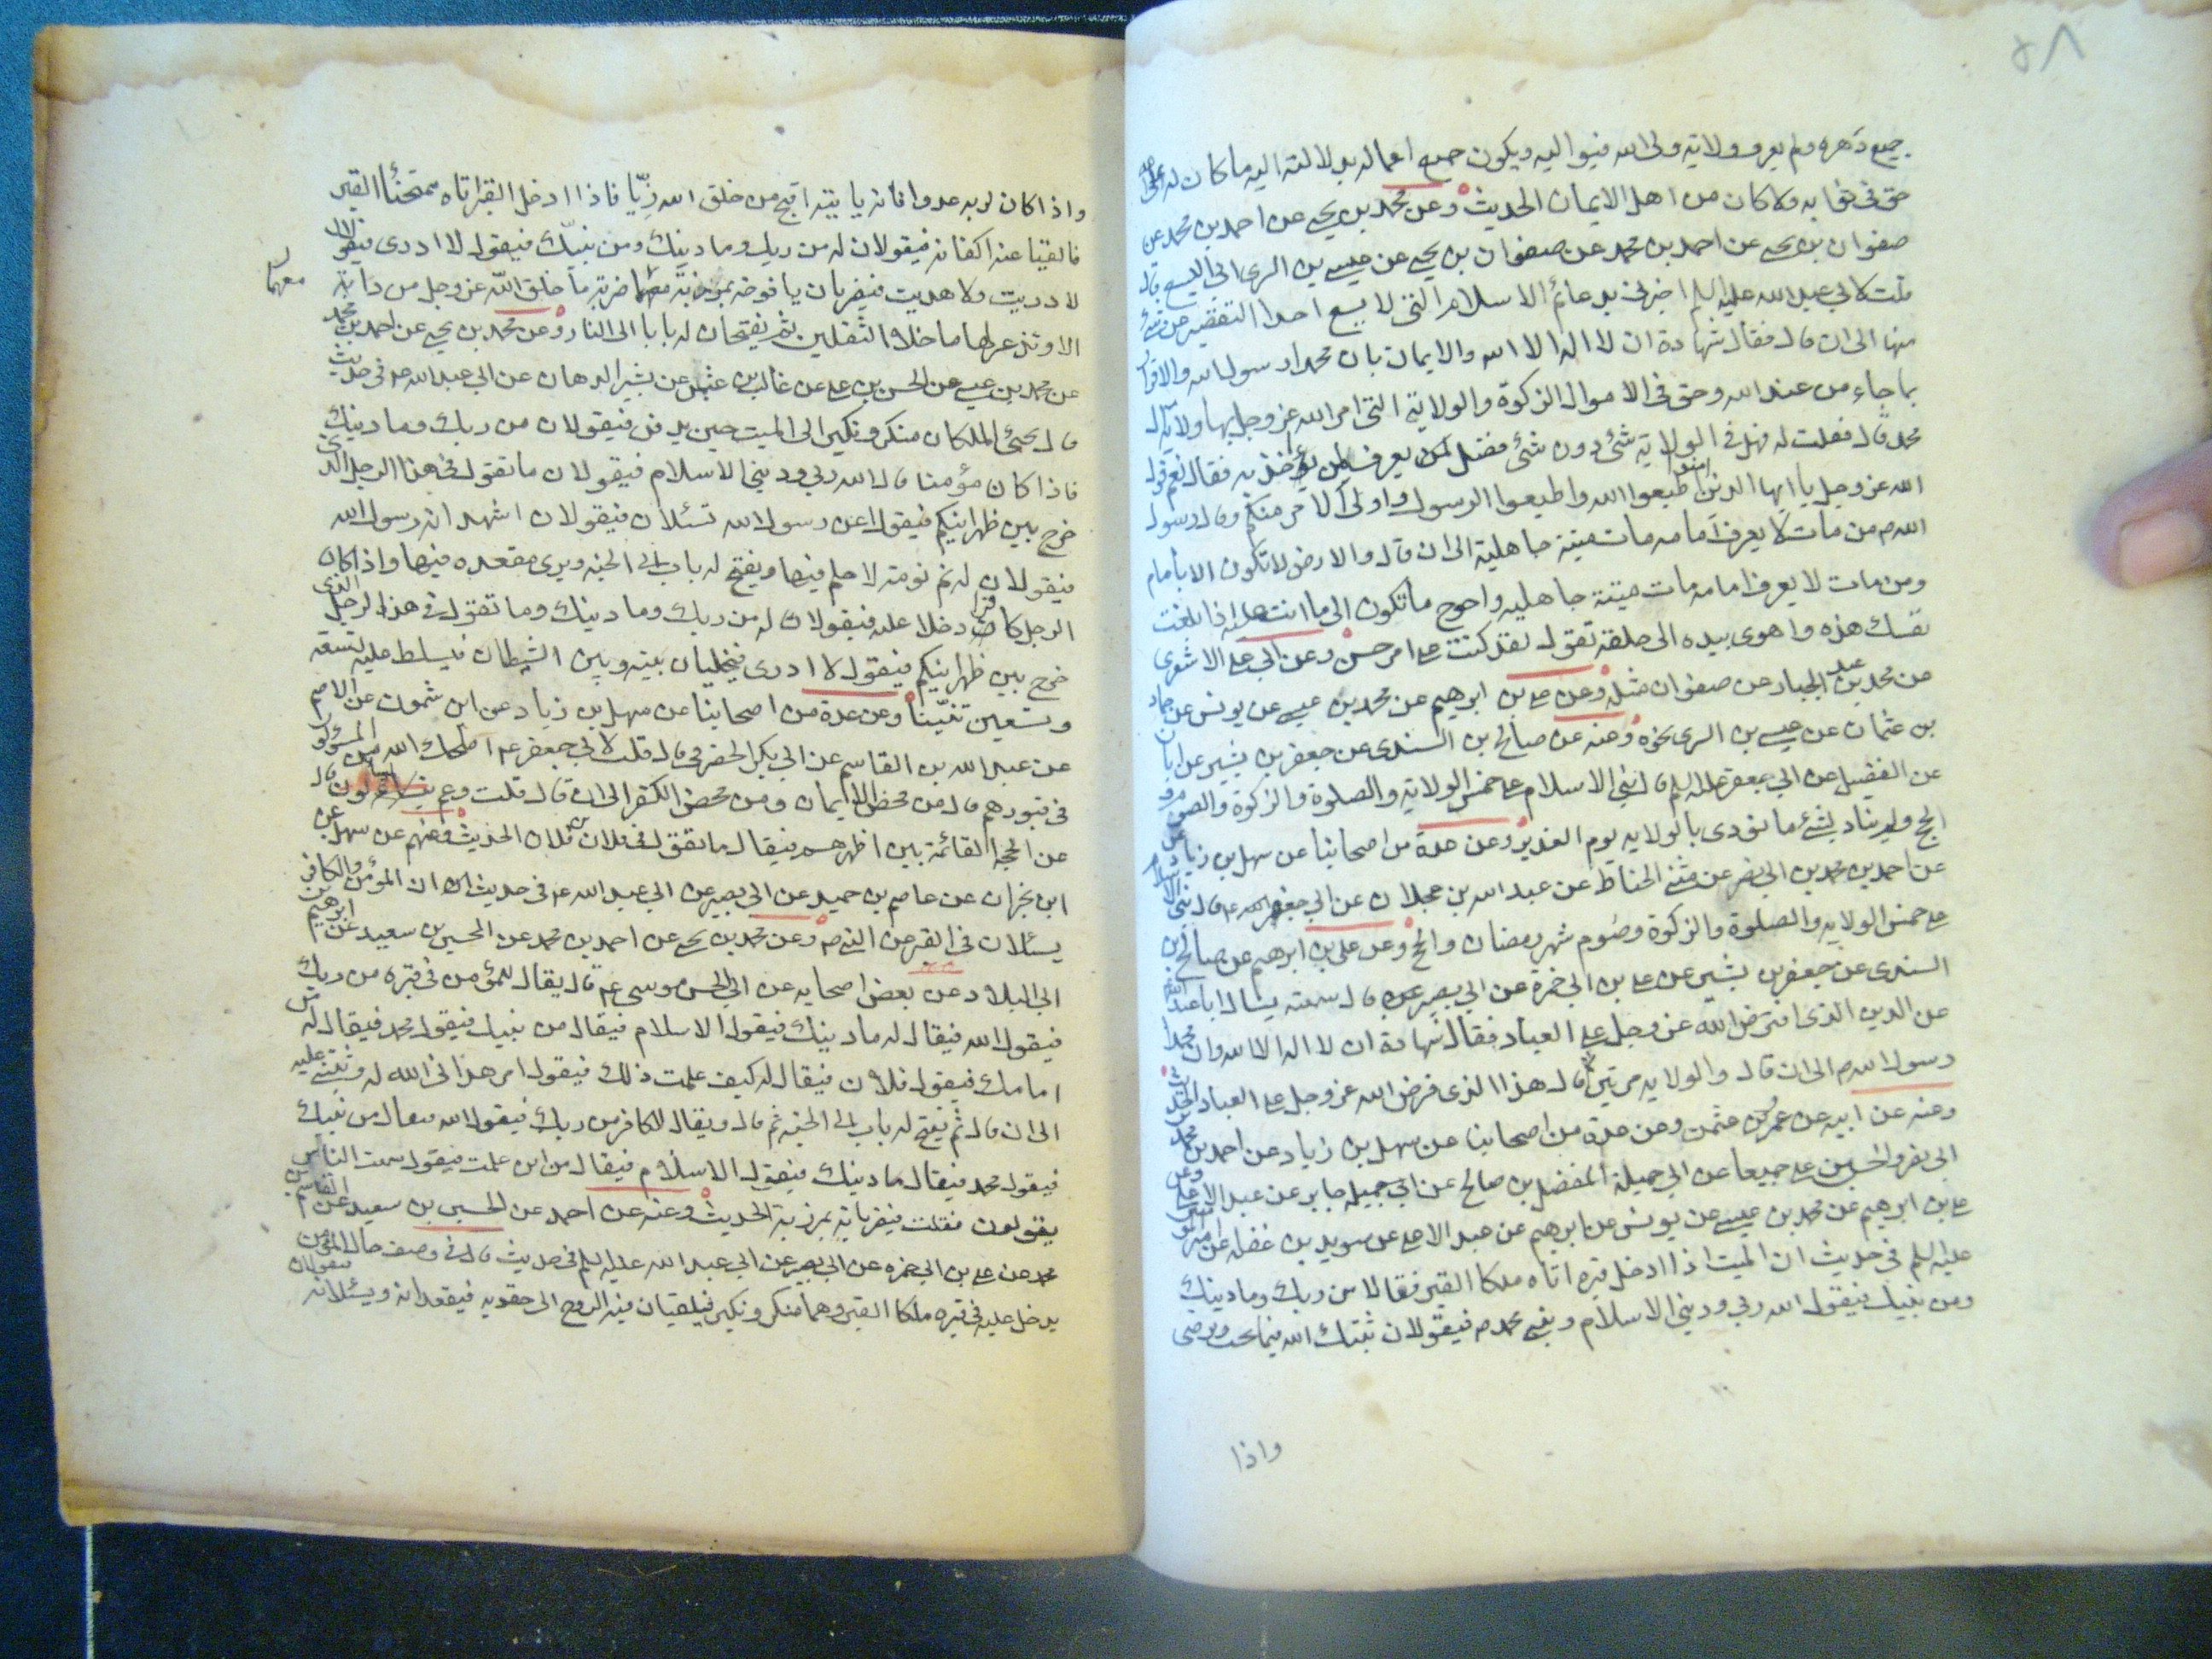 ٥٨
جميع دهره ولم يعرف ولاية ولى الله فيواليه ويكون جميع اعماله بدلالته اليه ما كان له على الله
حق في ثوابه ولا كان من اهل الايمان الحديث وعن محمد بن يحيى عن احمد بن محمد عن
صفوان بن يحيى عن احمد بن محمد عن صفوان بن يحيى عن عيسى بن السرى ابى اليسع قال
قلت لابي عبد الله عليه السلم اخبرني بدعائم الاسلام التي لا يسع احدا التقصير عن شئ
منها الى ان قال فقال شهادة ان لا اله الا الله والايمان بان محمدا رسول الله والاقرار
بما جاء من عند الله وحق في الاموال الزكوة والولاية التي امر الله عز وجل بها ولاية ال
محمد قال فقلت له فهل في الولاية شئ دون شئ فضل لمن يعرف لمن اخذ به فقال نعم قول
الله عز وجل يا ايها الذين امنوا اطيعوا الله واطيعوا الرسول واولى الامر منكم وقال رسول
الله ص من مات لا يعرف امامه مات ميتة جاهلية الى ان قال والارض لا تكون الا بامام
ومن مات لا يعرف امامه مات ميتة جاهليه واحوج ما تكون الى ما انت عليه اذا بلغت
نفسك هذه واهوى بيده الى حلقه تقول لقد كنت على امر حسن وعن ابي على الاشعرى
عن محمد بن عبد الجبار عن صفوان مثله وعن على بن ابرهيم عن محمد بن عيسى عن يونس عن حماد
بن عثمان عن عيسى بن السرى نحوه وعنه عن صالح بن السندى عن جعفر بن بشير عن ابان
عن الفضيل عن ابي جعفر عليه السلم قال بنى الاسلام على خمس الولاية والصلوة والزكوة والصوم
الحج ولم يناد بشئ ما نودى بالولايه يوم الغدير وعن عدة من اصحابنا عن سهل بن زياد
عن احمد بن محمد بن ابي نصر عن مثنى الحناط عن عبد الله بن عجلان عن ابي جعفر ع قال بنى الاسلام
على خمس الولايه والصلوة والزكوة وصوم شهر رمضان والحج وعن على بن ابرهيم عن صالح بن
السندى عن جعفر بن بشير عن على بن ابي حمزة عن ابي بصير قال سمعته يسال ابا عبد الله
عن الدين الذى افترض الله عز وجل على العباد فقال شهادة ان لا اله الا الله وان محمدا
رسول الله ص الى ان قال والولايه مرتين ثم قال هذا الذى فرض الله عز وجل على العباد الحديث
وعنه عن ابيه عن عثمن وعن عدة من اصحابنا عن سهل بن زياد عن احمد بن محمد بن
ابي نصر والحسن بن على جميعا عن ابي جميلة المفضل بن صالح عن جابر عن عبد الاعلى وعن
على بن ابرهيم عن محمد بن عيسى عن يونس عن ابرهيم عن عبد الاعلى عن سويد بن غفله عن امير المؤمنين
عليه السلم في حديث ان الميت اذا ادخل قبره اتاه ملكا القبر فقالا من ربك وما دينك
ومن نبيك فيقول الله ربي وديني الاسلام ونبيي محمد ص فيقولان ثبتك الله فيما تحب وترضى
واذا
واذا كان لربه عدوا فانه ياتيه اقبح من خلق الله زيا فاذا ادخل القبر اتاه ممتحنا القبر
فالقيا عنه اكفانه فيقولان له من ربك وما دينك ومن نبيك فيقول لا ادرى فيقولان
لا دريت ولا هديت فيضربان يافوخه بمرزبة معهما ضربة ما خلق الله عز وجل من دابة
معهما
الا وتذعر لها ما خلا الثقلين ثم يفتحان له بابا الى النار وعن محمد بن يحيى عن احمد بن محمد
عن محمد بن عيسى عن الحسن بن على عن غالب بن عثمن عن بشير الدهان عن ابي عبد الله ع في حديث
قال يجئ الملكان منكر ونكير الى الميت حين يدفن فيقولان من ربك وما دينك
فاذا كان مؤمنا قال الله ربي وديني الاسلام فيقولان ما تقول في هذا الرجل الذى
خرج بين ظهرانيكم فيقول اعن رسول الله تسئلان فيقولان اشهد انه رسول الله
فيقولان له نم نومة لا حلم فيها ويفتح له باب الى الجنه ويرى مقعده فيها واذا كان
الرجل كافرا دخلا عليه فيقولان له من ربك وما دينك وما تقول في هذا الرجل الذى
خرج بين ظهرانيكم فيقول لا ادرى فيخليان بينه وبين الشيطان فيسلط عليه تسعة
وتسعين تنينا وعن عدة من اصحابنا عن سهل بن زياد عن ابن شمون عن الاصم
عن عبد الله بن القاسم عن ابي بكر الحضرمي قال قلت لابي جعفر ع اصلحك الله من المسئولون
في قبورهم قال من محض الايمان ومن محض الكفر الى ان قال قلت وعم يسئلون قال
عن الحجة القائمة بين اظهرهم فيقال ما تقول في فلان بن فلان الحديث وعنهم عن سهل عن
ابن نجران عن عاصم بن حميد عن ابي بصير عن ابي عبد الله ع في حديث ان المؤمن والكافر
يسئلان في القبر عن النبي ص وعن محمد بن يحيى عن احمد بن محمد عن الحسين بن سعيد عن ابرهيم بن
ابي البلاد عن بعض اصحابه عن ابي الحسن موسى ع قال يقال للمؤمن في قبره من ربك
فيقول الله فيقال له ما دينك فيقول الاسلام فيقال من نبيك فيقول محمد فيقال له من
امامك فيقول فلان فيقال له كيف علمت ذلك فيقول امر هدانى الله له وثبتني عليه
الى ان قال ثم يفتح له باب الى الجنه ثم قال ويقال للكافر من ربك فيقول الله فيقال من نبيك
فيقول محمد فيقال ما دينك فيقول الاسلام فيقال من اين علمت فيقول سمعت الناس
يقولون فقلت فيضربانه بمرزبة الحديث وعنه عن احمد عن الحسين بن سعيد عن القاسم بن
محمد عن على بن ابي حمزه عن ابي بصير عن ابي عبد الله عليه السلم في حديث قال في وصف حال المؤمن
يدخل عليه في قبره ملكا القبر وهما منكر ونكير فيلقيان فيه الروح الى حقويه فيقعدانه ويسئلانه فيقولان